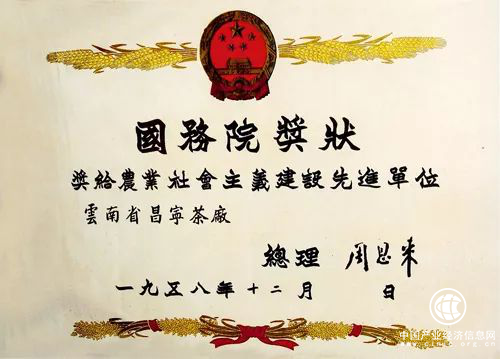 國務院獎狀
獎給農業社會主義建設先進單位
雲南省昌寧茶廠
總理 周恩来
一九五八年十二月 日
中国产业经济信息网